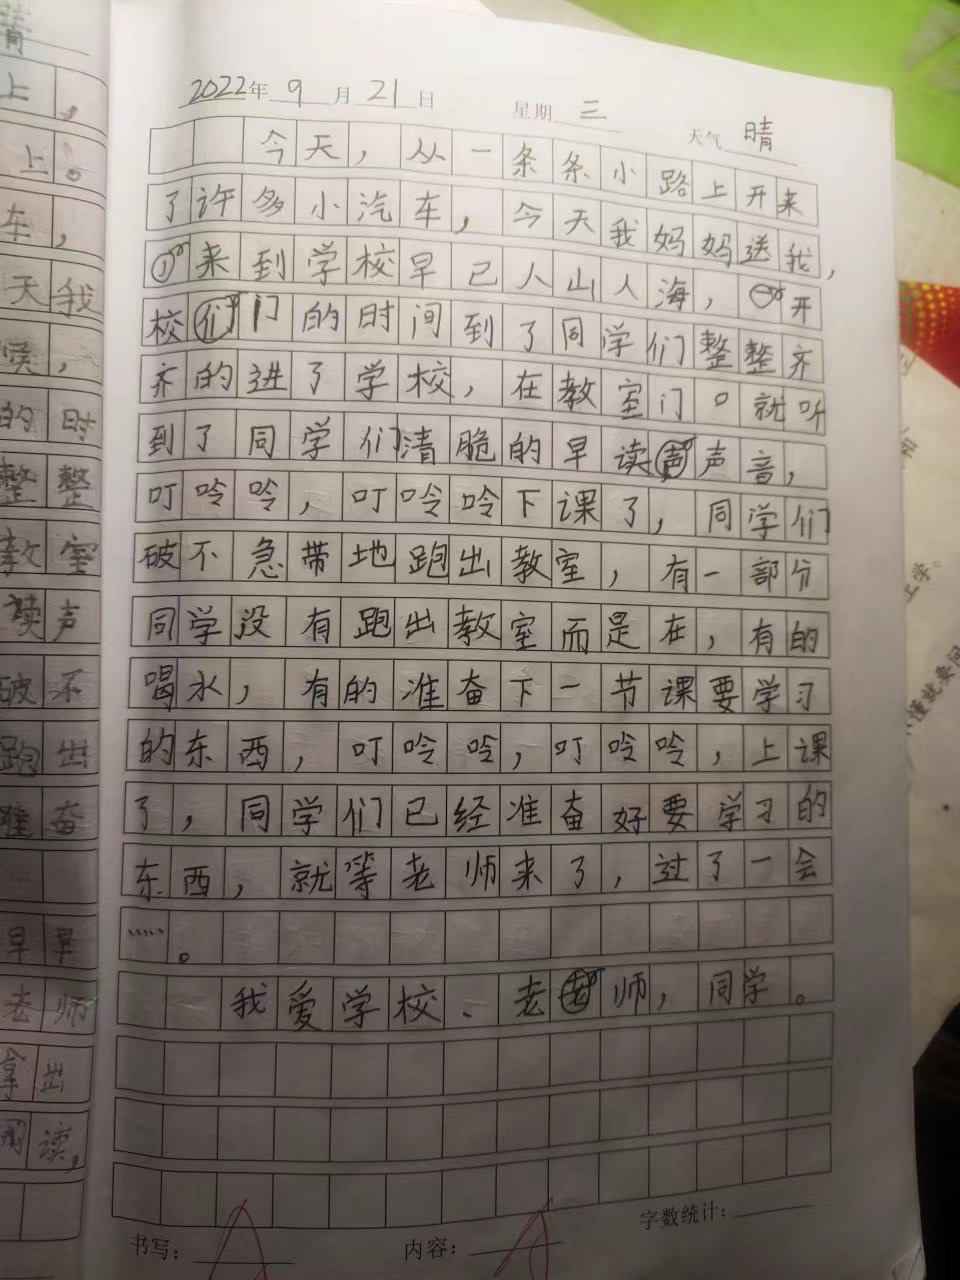 2022年 9 月 21 日 星期 三 天气 晴
今天，从一条条小路上开来
了许多小汽车，今天我妈妈送我，
来到学校早已人山人海，开
校门的时间到了同学们整整齐
齐的进了学校，在教室门口就听
到了同学们清脆的早读声音，
叮呤呤，叮呤呤下课了，同学们
破不急带地跑出教室，有一部分
同学没有跑出教室而是在，有的
喝水，有的准奋下一节课要学习
的东西，叮呤呤，叮呤呤，上课
了，同学们已经准奋好要学习的
东西，就等老师来了，过了一会
……。
我爱学校、老师，同学。
书写： A 内容： A 字数统计：
晴
上，
上。
车，
天我
的时
整整
教室
读声
破不
跑出
准奋
早早
老师
拿出
读，
上学。
懂就要问